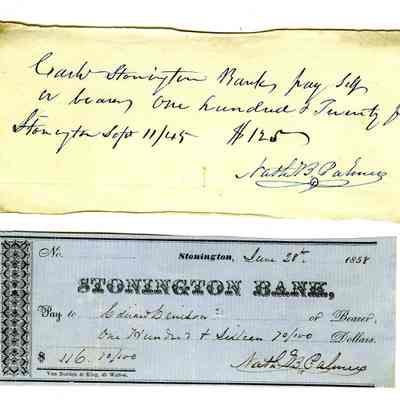 Cashr Stonington Bank, pay Self
or bearer One hundred & Twenty f
Stonington Sept 11/45 $125
Nathl B. Palmer
No. Stonington, June 28th 1858
STONINGTON BANK,
Pay to Edward Denison or Bearer,
One Hundred & Sixteen 70/100 Dollars.
$ 116. 70/100 Nathl B. Palmer